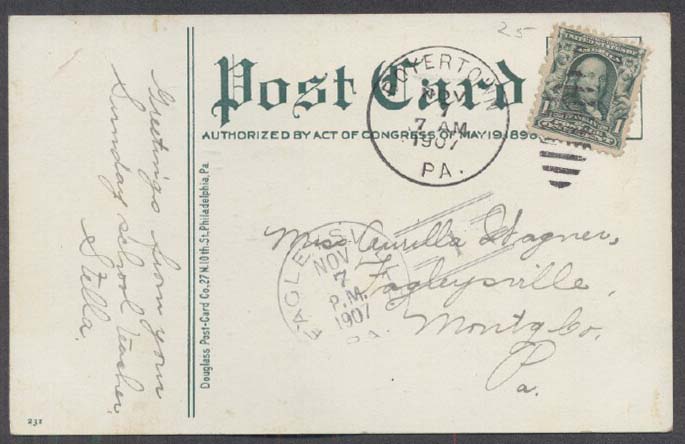 25
Post Card
AUTHORIZED BY ACT OF CONGRESS, OF MAY 19, 1898
BOYERTOWN
NOV
7
7 AM
1907
PA.
1
1
Greetings from your
Sunday school teacher.
Stella.
Douglass Post-Card Co., 27 N. 10th St., Philadelphia, Pa.
FAGLEYSVILLE
NOV
7
P.M.
1907
PA.
1
Miss Aurilla Wagner,
Fagleysville,
Montg Co.
Pa.
231